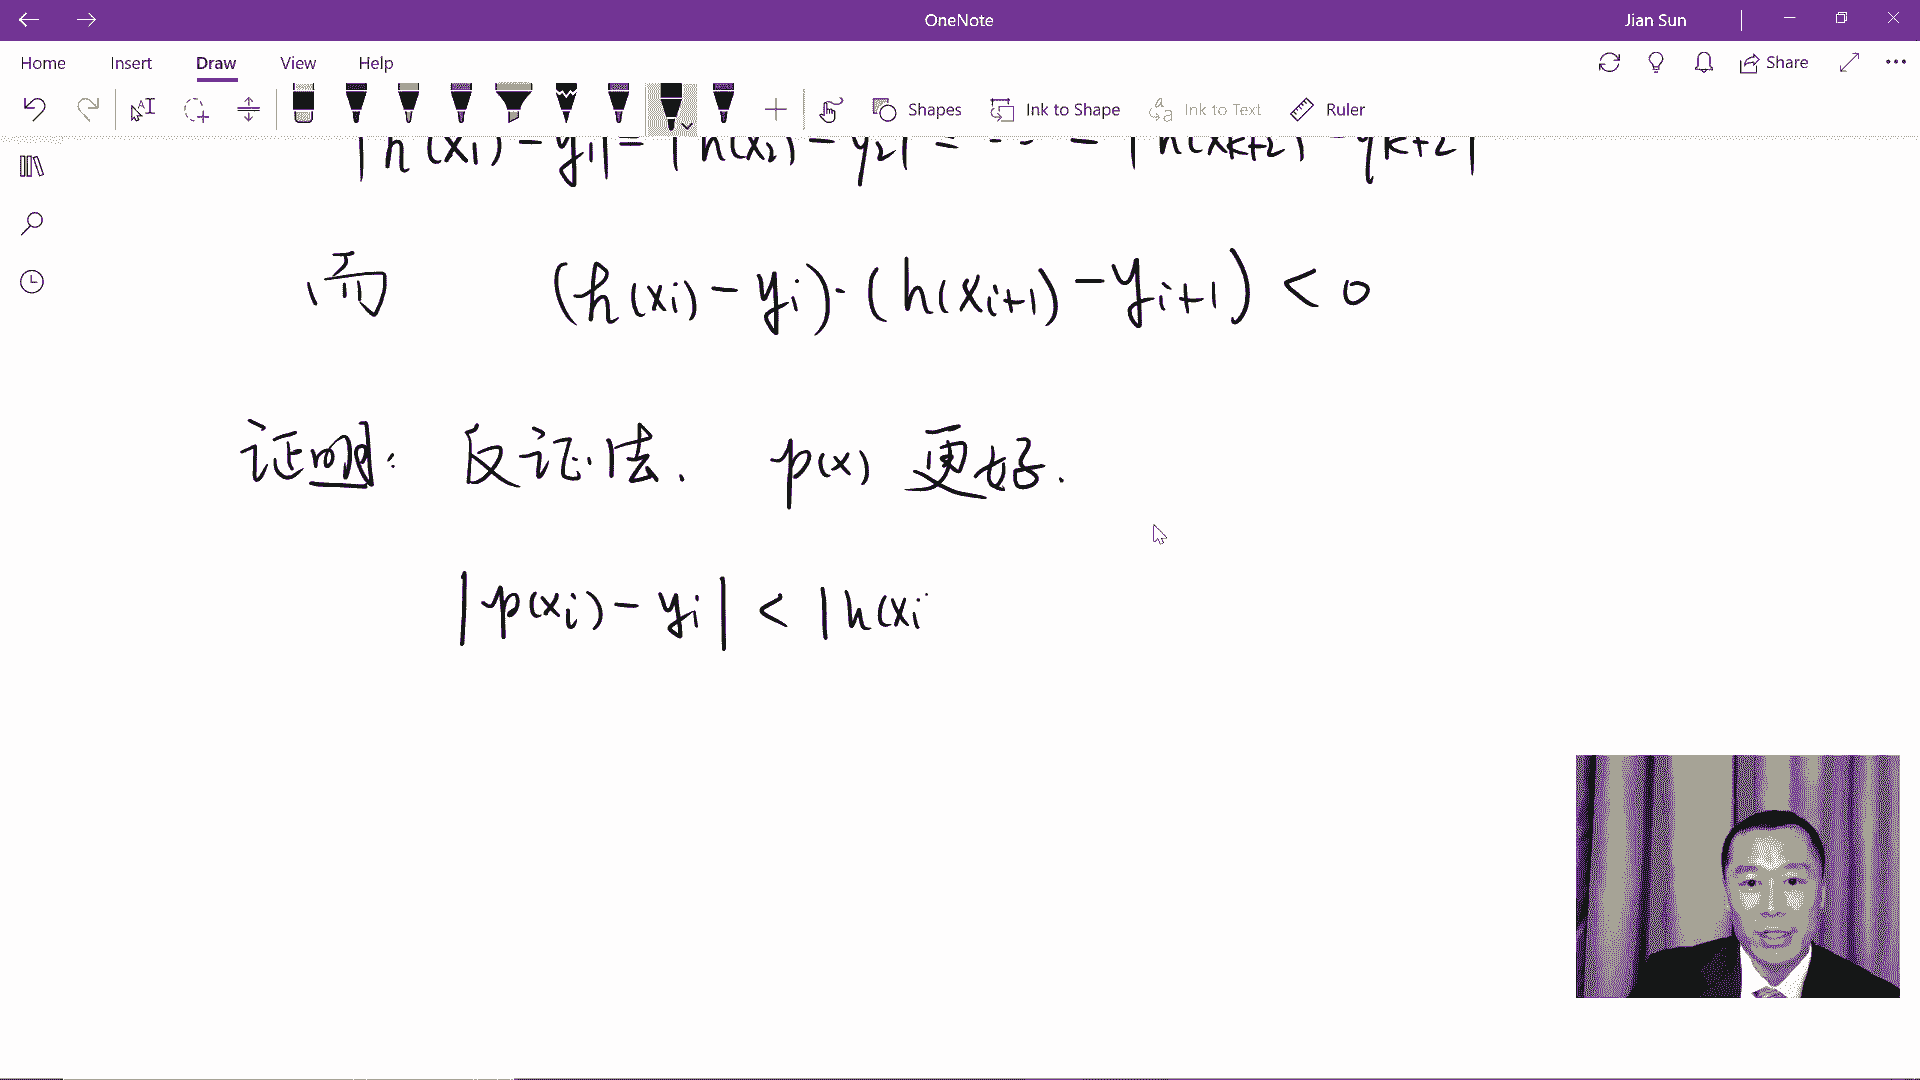 OneNote
Jian Sun
Home Insert Draw View Help
Share
Shapes Ink to Shape Ink to Text Ruler
|h(x1) - y1| = |h(x2) - y2| = ... = |h(xk+2) - yk+2|
而 (h(xi) - yi)·(h(xi+1) - yi+1) < 0
证明: 反证法. p(x) 更好.
|p(xi) - yi| < |h(xi